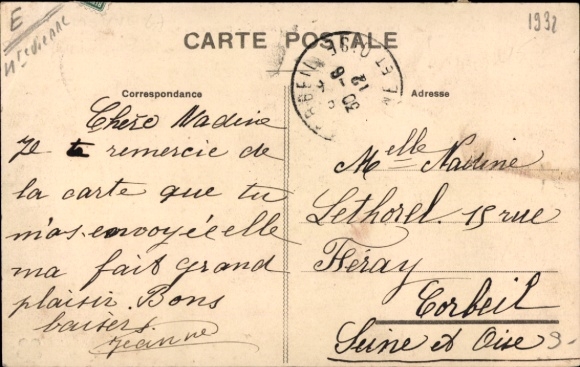 E
Hte Vienne
1932
CARTE POSTALE
Correspondance
Adresse
ET OISE
12
30 - 6
Chère Nadine
Je te remercie de
la carte que tu
m'as envoyée elle
ma fait grand
plaisir. Bons
baisers.
Jeanne
Melle Nadine
Lethorel. 15 rue
Féray
Corbeil
Seine et Oise
3-